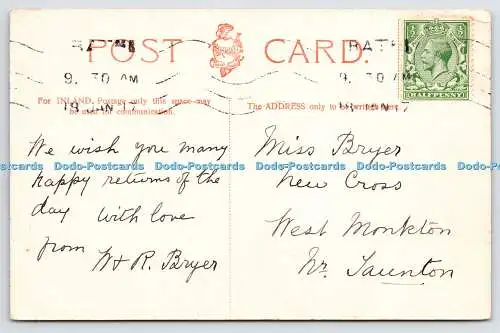 POST CARD.
BATH
9. 30 AM
19 JAN 17
BATH
9. 30 AM
HALFPENNY
For INLAND Postage only this space may
be used for communication.
The ADDRESS only to be written here.
We wish you many
happy returns of the
day with love
from W & R. Bryer
Miss Bryer
New Cross
West Monkton
Nr. Taunton
Dodo-Postcards Dodo-Postcards Dodo-Postcards Dodo-Postcards Dodo-Postcards Dodo-Postcards